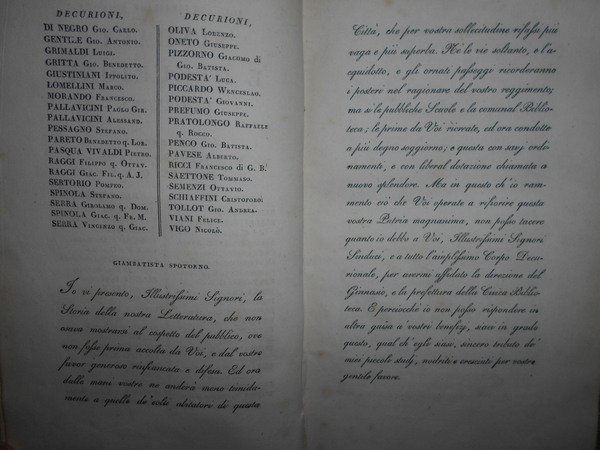 DECURIONI,
DI NEGRO Gio. Carlo.
GENTILE Gio. Antonio.
GRIMALDI Luigi.
GRITTA Gio. Benedetto.
GIUSTINIANI Ippolito.
LOMELLINI Marco.
MORANDO Francesco.
PALLAVICINI Paolo Gir.
PALLAVICINI Alessand.
PESSAGNO Stefano.
PARETO Benedetto q. Lor.
PASQUA VIVALDI Pietro.
RAGGI Filippo q. Ottav.
RAGGI Giac. Fil. q. A. J.
SERTORIO Pompeo.
SPINOLA Stefano.
SERRA Girolamo q. Dom.
SPINOLA Giac. q. Fr. M.
SERRA Vincenzo q. Giac.
DECURIONI,
OLIVA Lorenzo.
ONETO Giuseppe.
PIZZORNO Giacomo di
Gio. Batista.
PODESTA' Luca.
PICCARDO Wenceslao.
PODESTA' Giovanni.
PREFUMO Giuseppe.
PRATOLONGO Raffaele
q. Rocco.
PENCO Gio. Batista.
PAVESE Alberto.
RICCI Francesco di G. B.
SAETTONE Tommaso.
SEMENZI Ottavio.
SCHIAFFINI Cristoforo.
TOLLOT Gio. Andrea.
VIANI Felice.
VIGO Nicolò.
GIAMBATISTA SPOTORNO.
Io vi presento, Illustrissimi Signori, la
Storia della nostra Letteratura, che non
osava mostrarsi al cospetto del pubblico, ove
non fosse prima accolta da Voi, e dal vostro
favor generoso rafiancata e difesa. Ed ora
dalle mani vostre ne andrà meno timida-
mente a quelle de' colti abitatori di questa
Città, che per vostra sollecitudine rifassi più
vaga e più superba. Nè le vie soltanto, e l'a-
quidotto, e gli ornati passeggi ricorderanno
i posteri nel ragionare del vostro reggimento;
ma sì le pubbliche Scuole e la comunal Biblio-
teca; le prime da Voi ricreate, ed ora condotte
a più degno soggiorno; e questa con savj ordi-
namenti, e con liberal dotazione chiamata a
nuovo splendore. Ma in questo ch' io ram-
mento ciò che Voi operate a rifiorire questa
vostra Patria magnanima, non posso tacere
quanto io debbo a Voi, Illustrissimi Signori
Sindaci, e a tutto l'amplissimo Corpo Decu-
rionale, per avermi affidato la direzione del
Ginnasio, e la prefettura della Civica Biblio-
teca. E perciocchè io non posso rispondere in
altra guisa a vostri benefizj, siavi in grado
questo, qual ch' egli siasi, sincero tributo de'
miei piccoli studj, nodriti e crescenti per vostro
gentile favore.